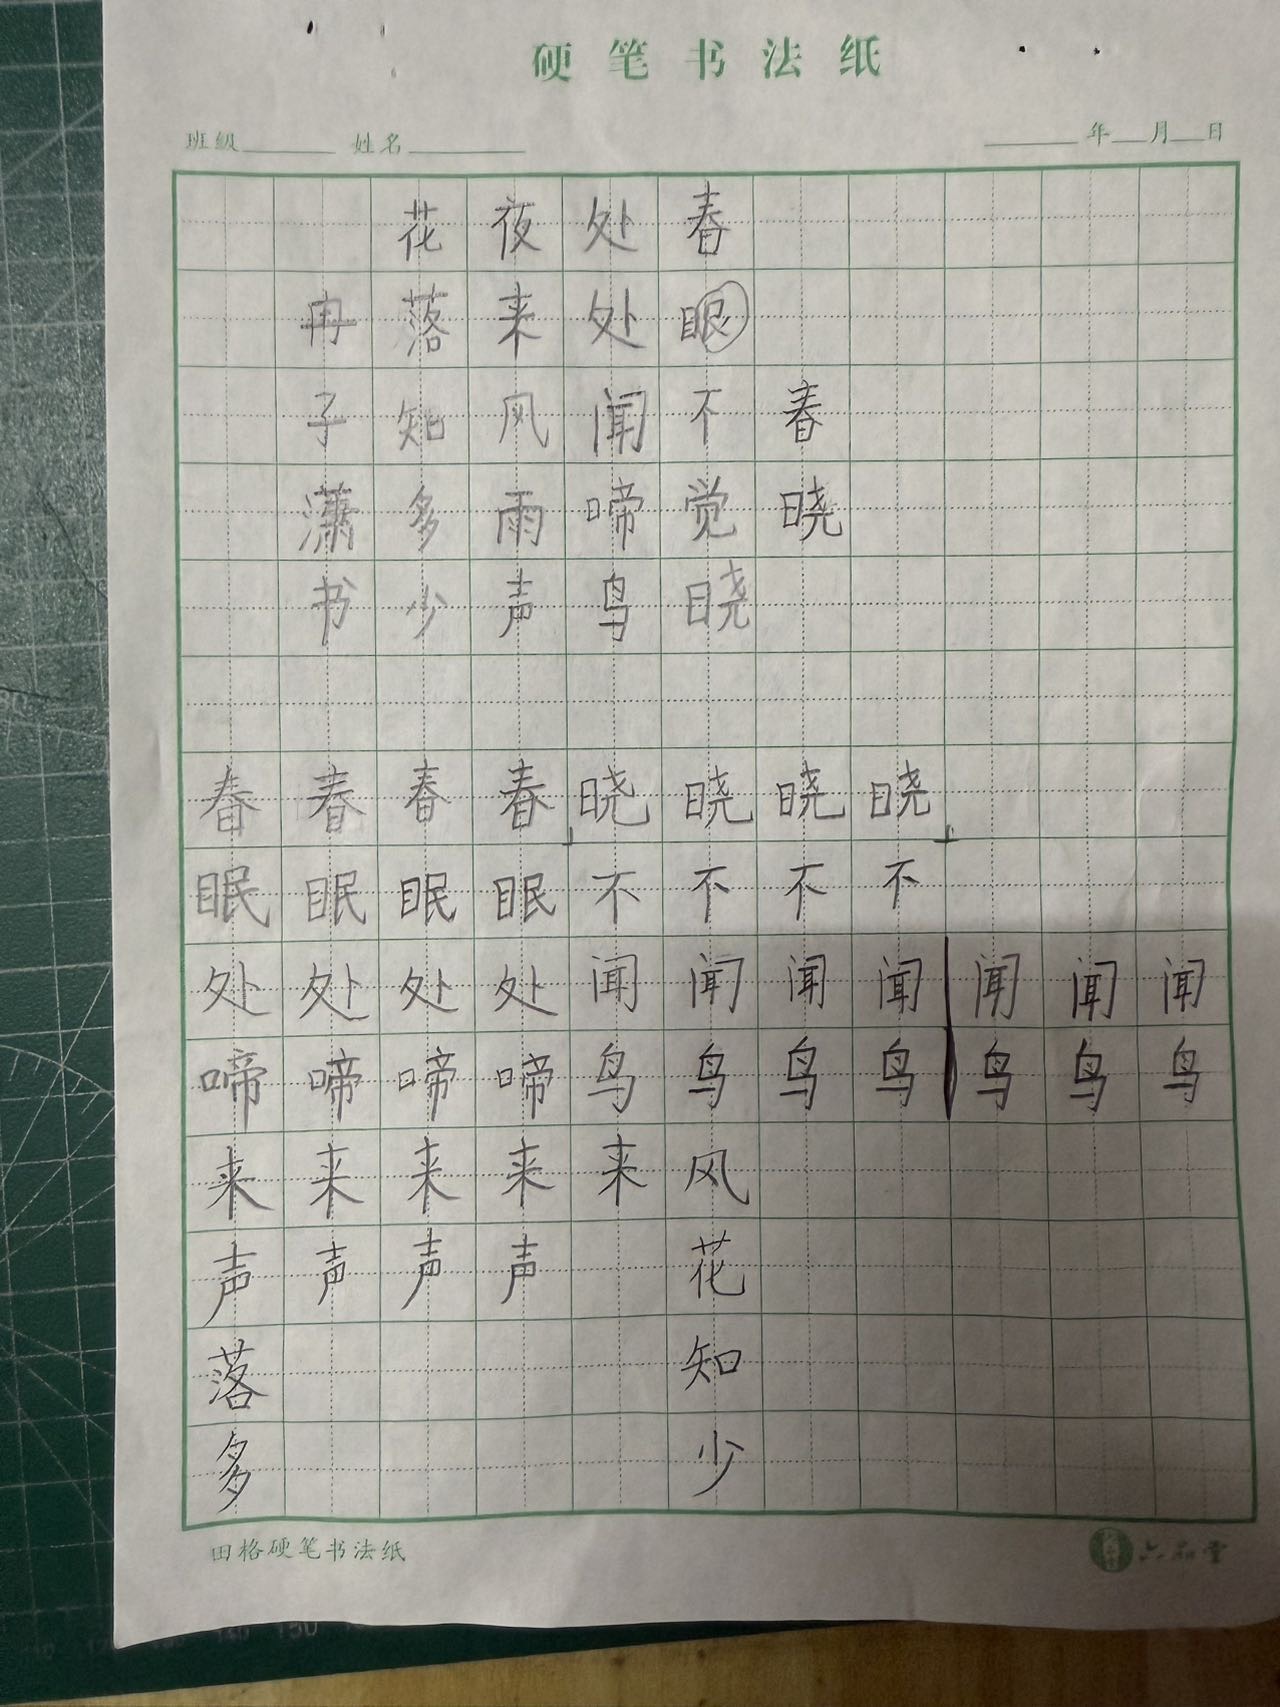 硬笔书法纸
班级 姓名 年 月 日
春晓
春眼不觉晓
处处闻啼鸟
夜来风雨声
花落知多少
冉子潇书
春春春春晓晓晓晓
眠眠眠眠不不不不
处处处处闻闻闻闻闻闻闻
啼啼啼啼鸟鸟鸟鸟鸟鸟鸟
来来来来来风
声声声声 花
落 知
多 少
田格硬笔书法纸
六品堂